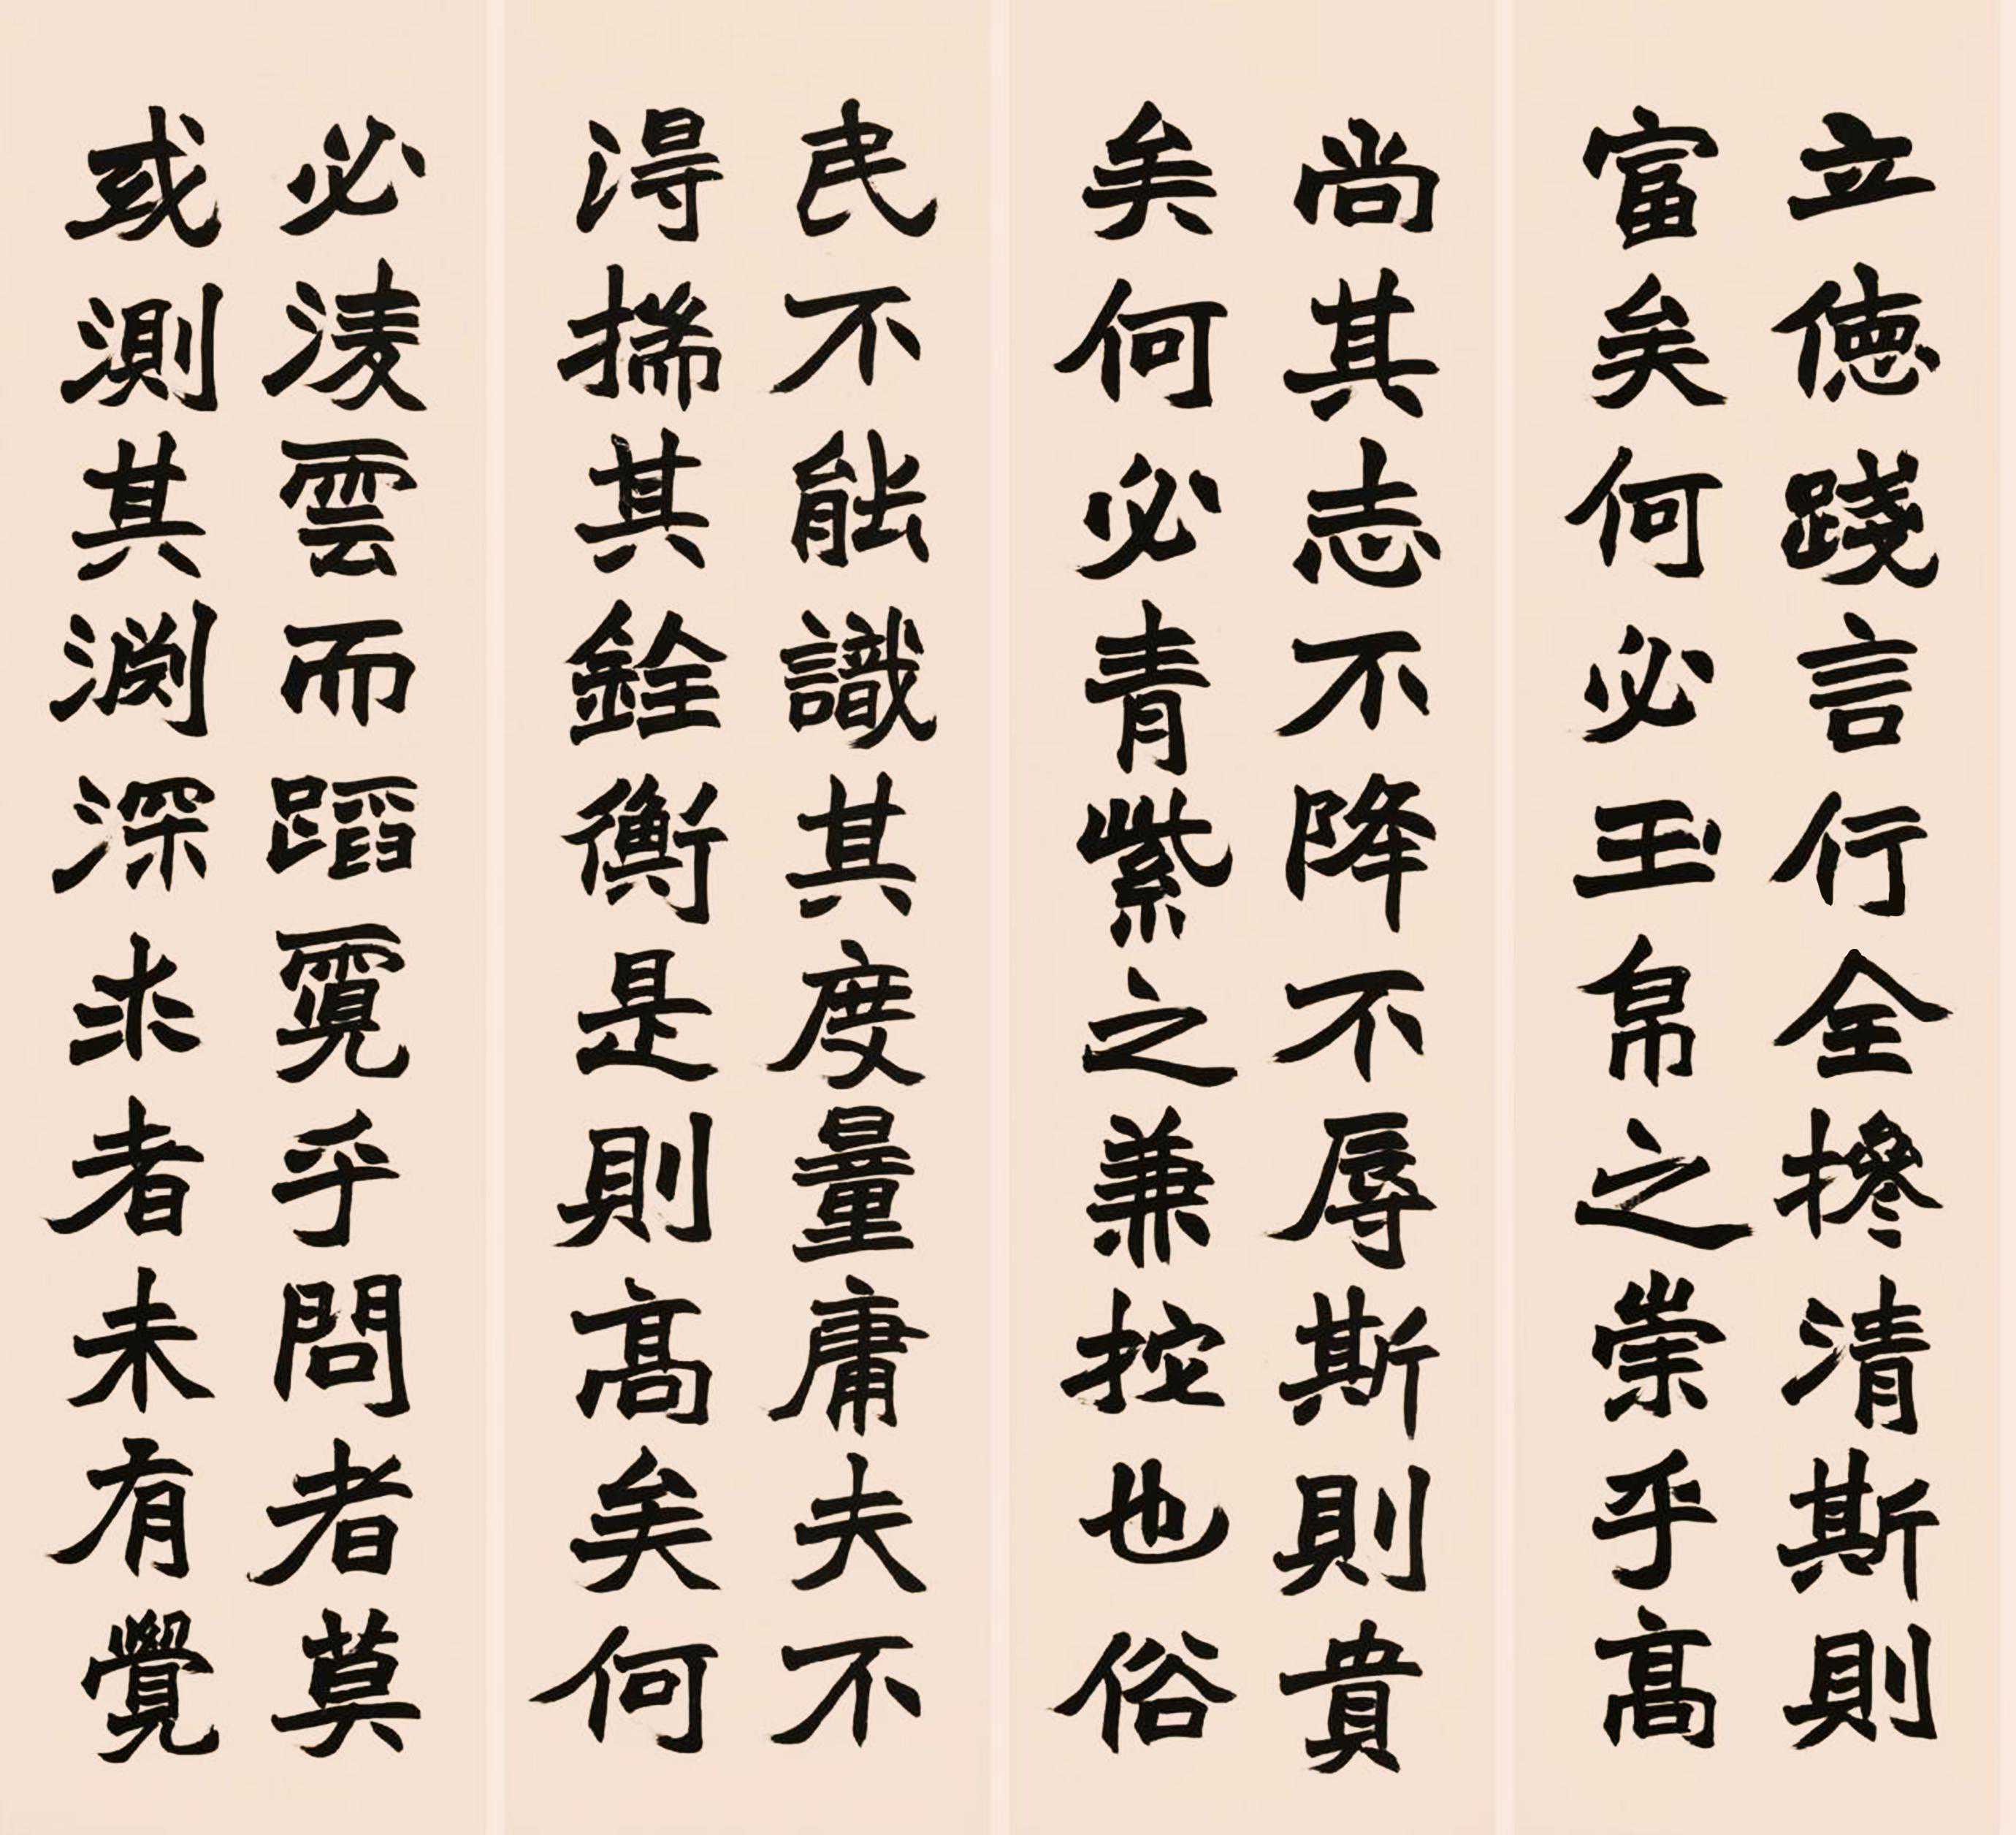 立德踐言行全操清斯則
富矣何必玉帛之崇乎高
尚其志不降不辱斯則貴
矣何必青紫之兼拕也俗
民不能識其度量庸夫不
得揣其銓衡是則高矣何
必淩雲而蹈霓乎問者莫
或測其淵深求者未有覺